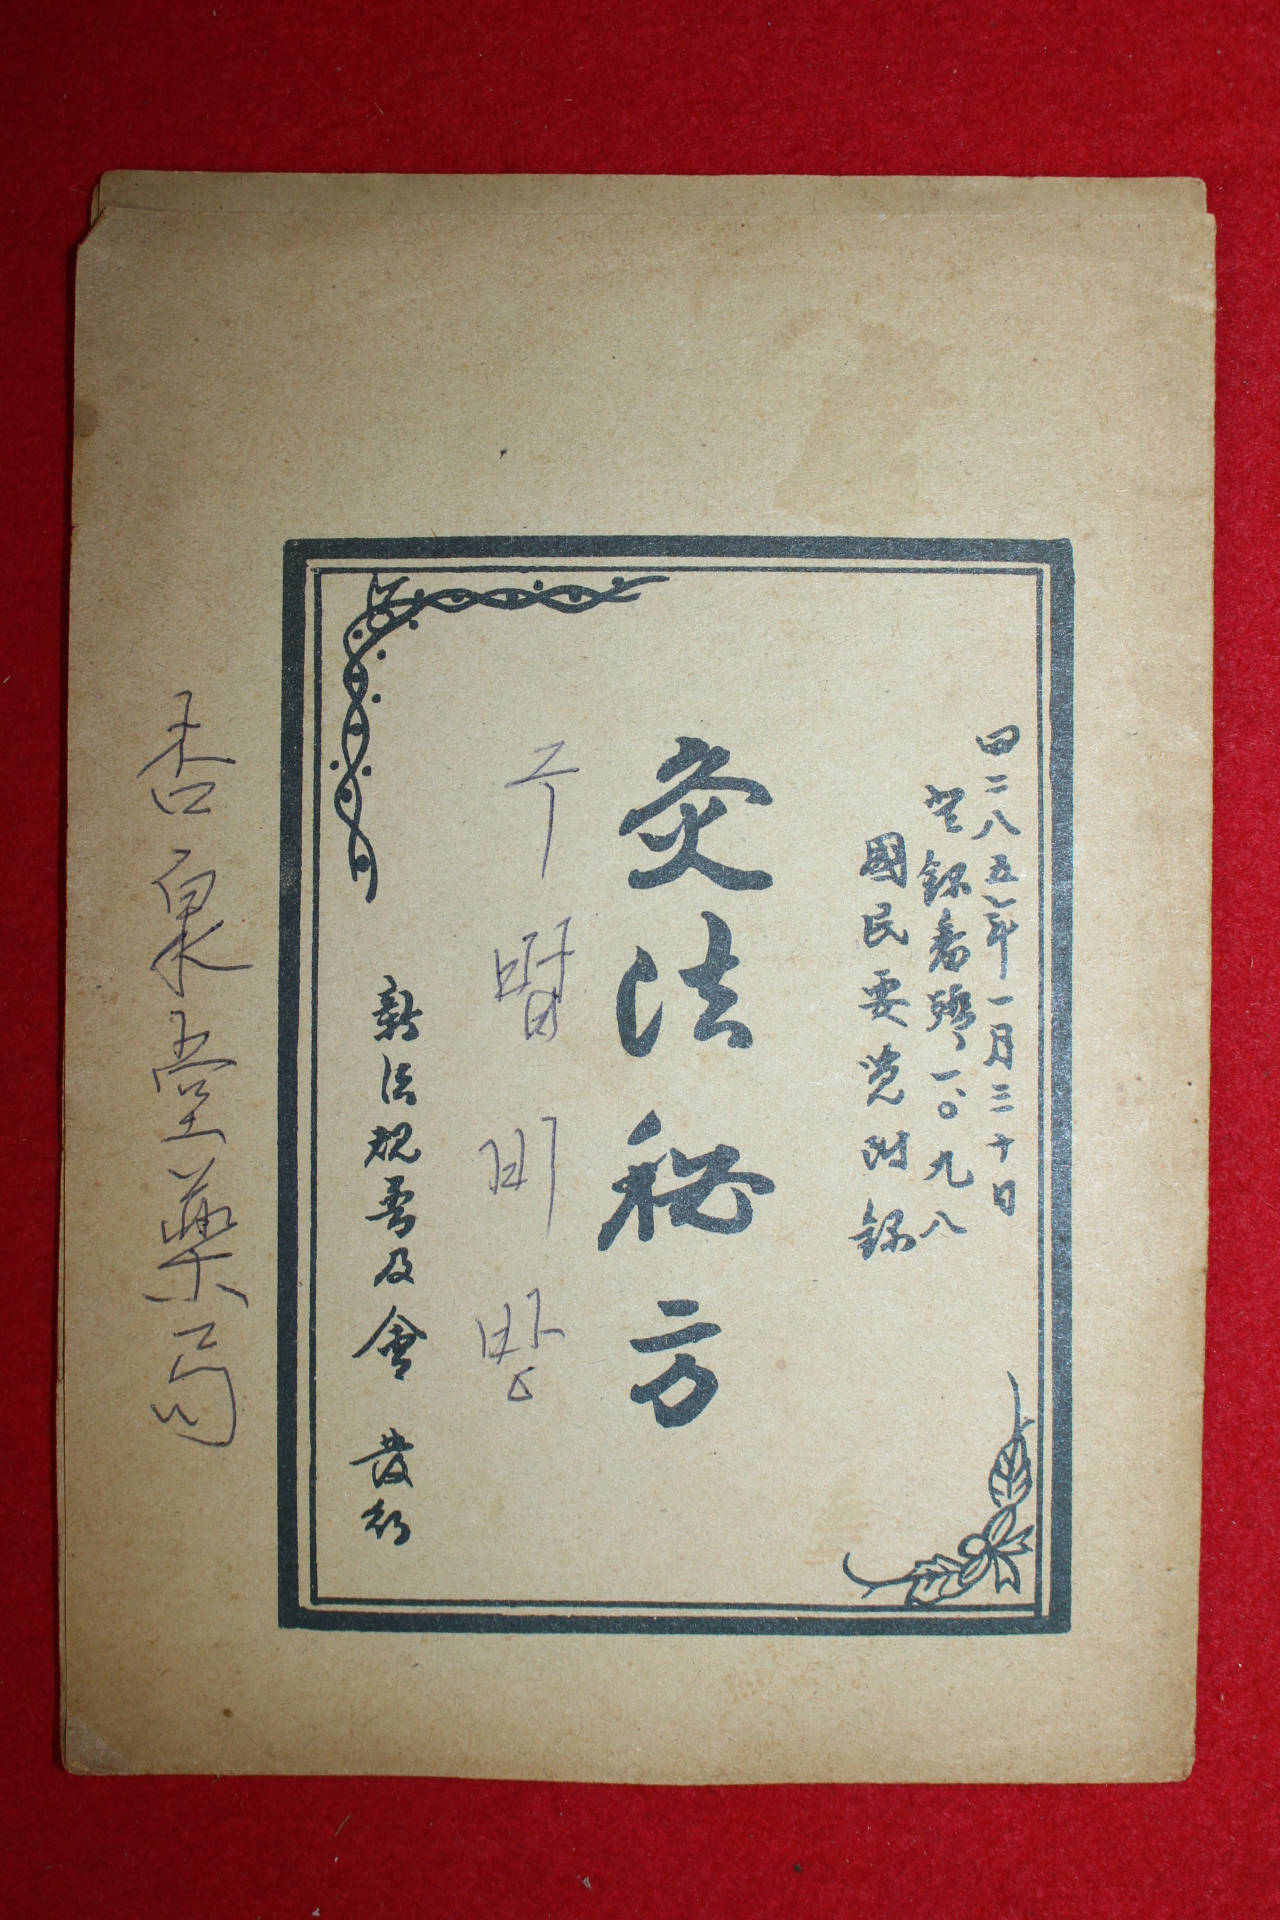 四二八五年一月三十日
登録番號、一、〇九八
國民要覽附録
灸法秘方
구법비방
新法規普及會 發行
杏泉堂藥局